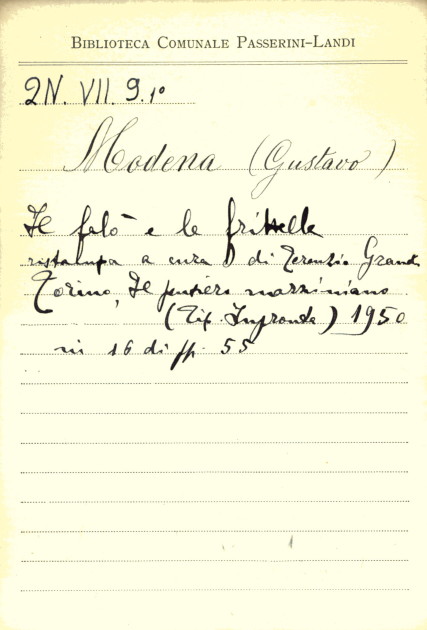 BIBLIOTECA COMUNALE PASSERINI-LANDI
2N. VII. 9.1º
Modena (Gustavo)
Il falò e le frittelle
ristampa a cura di Terenzio Grandi
Torino, Il pensiero mazziniano
(Tip. Impronta) 1950
in 16 di pp. 55